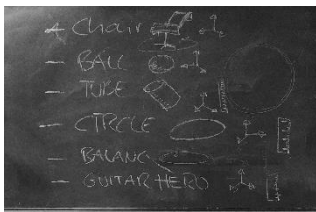 Chair
- BALL
- TUBE
- CIRCLE
- BALANC
- GUITAR HERO